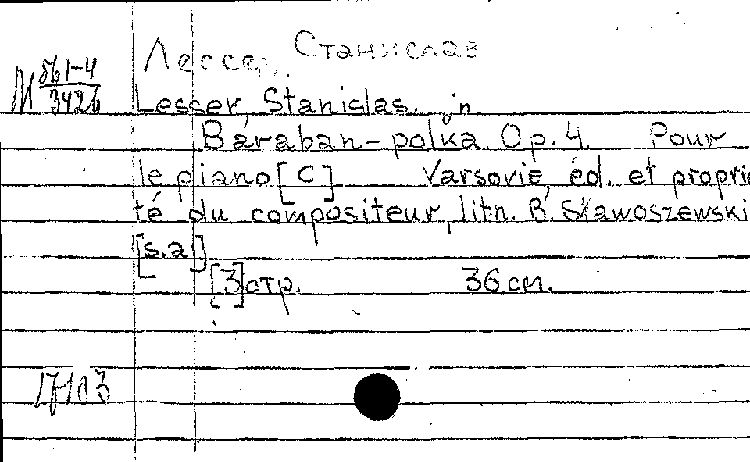 Лессер, Станислав
М 561-4
3426
Lesser, Stanislas. jn
Baraban-polka Op. 4. Pour
le piano [C] Varsovie, éd. et proprié
té du compositeur, lith. B. Sławoszewski
[s.a]
[3] стр. 36 см.
17103